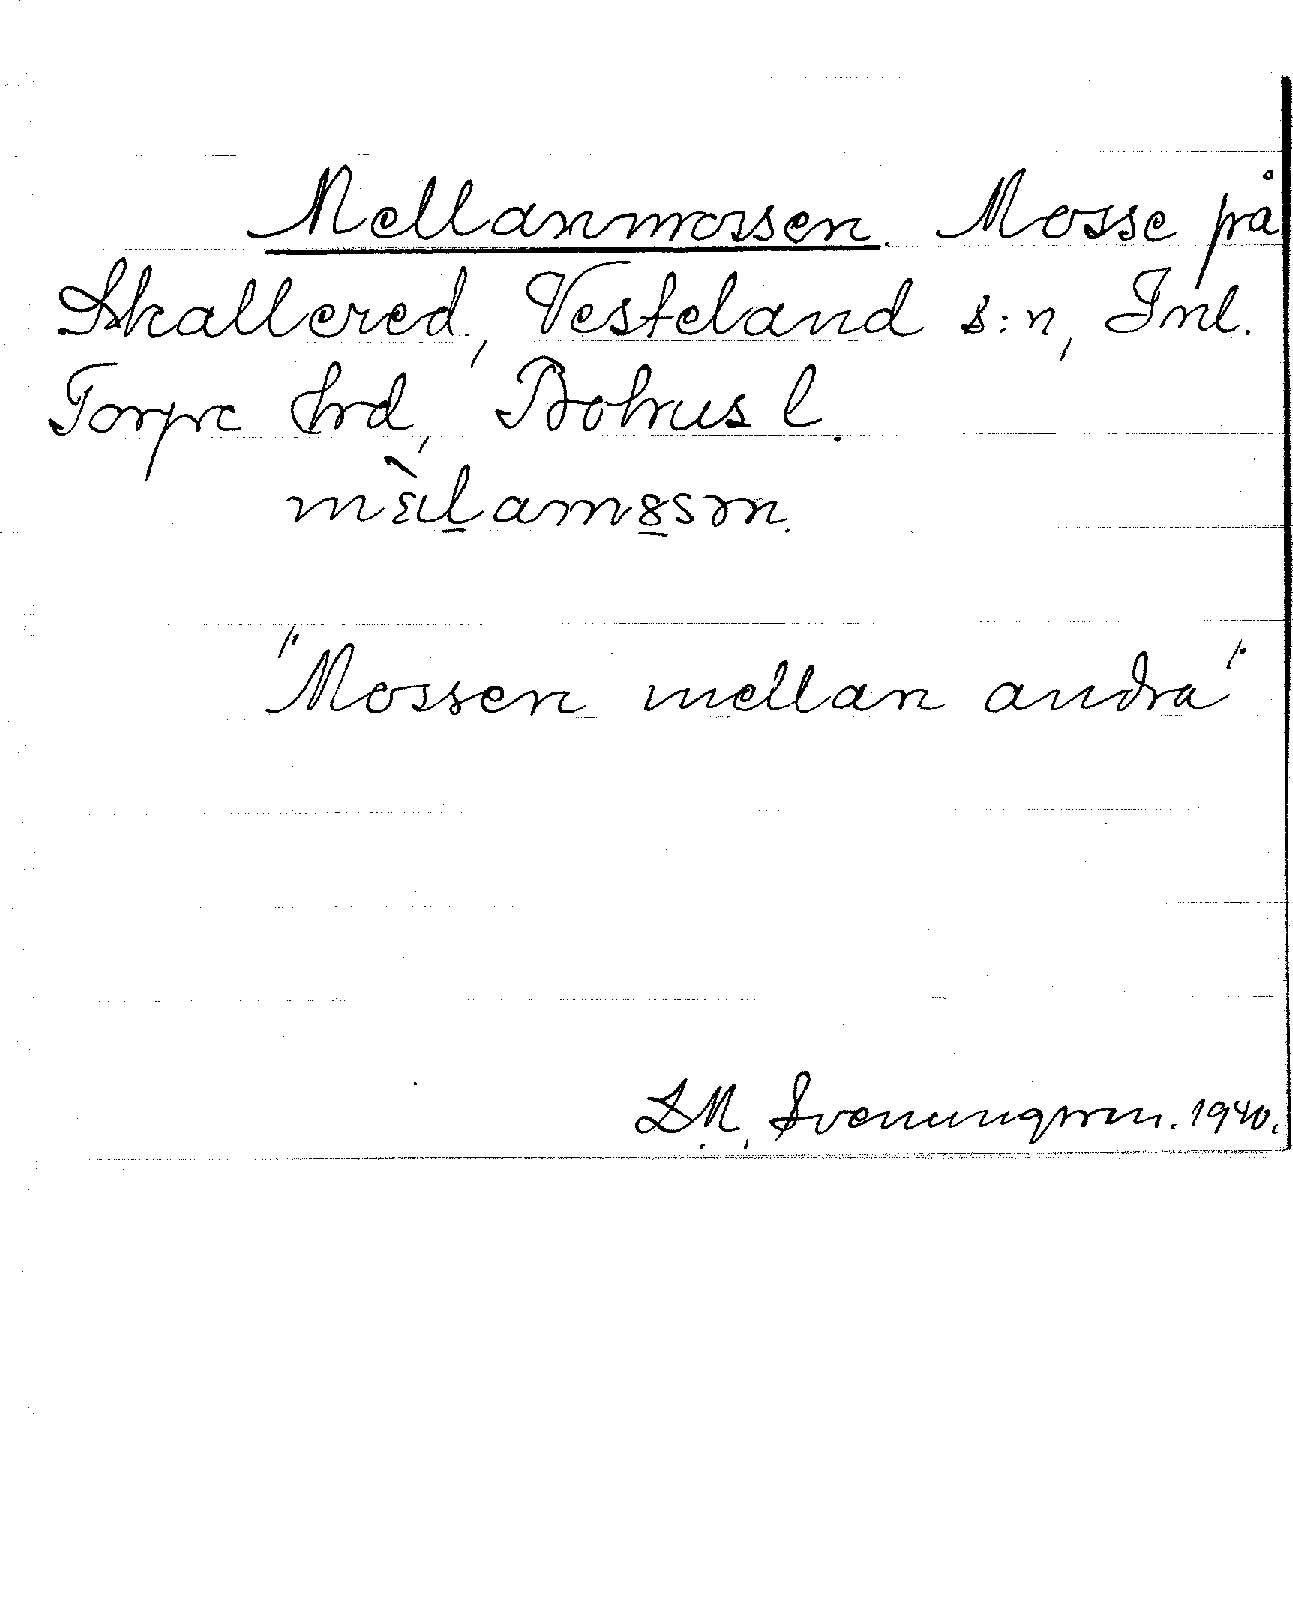 Mellanmossen. Mosse på
Skallered, Vesteland s:n, Inl.
Torpe hrd, Bohus l.
"Mossen mellan andra"
S.M. Svenungson. 1940.